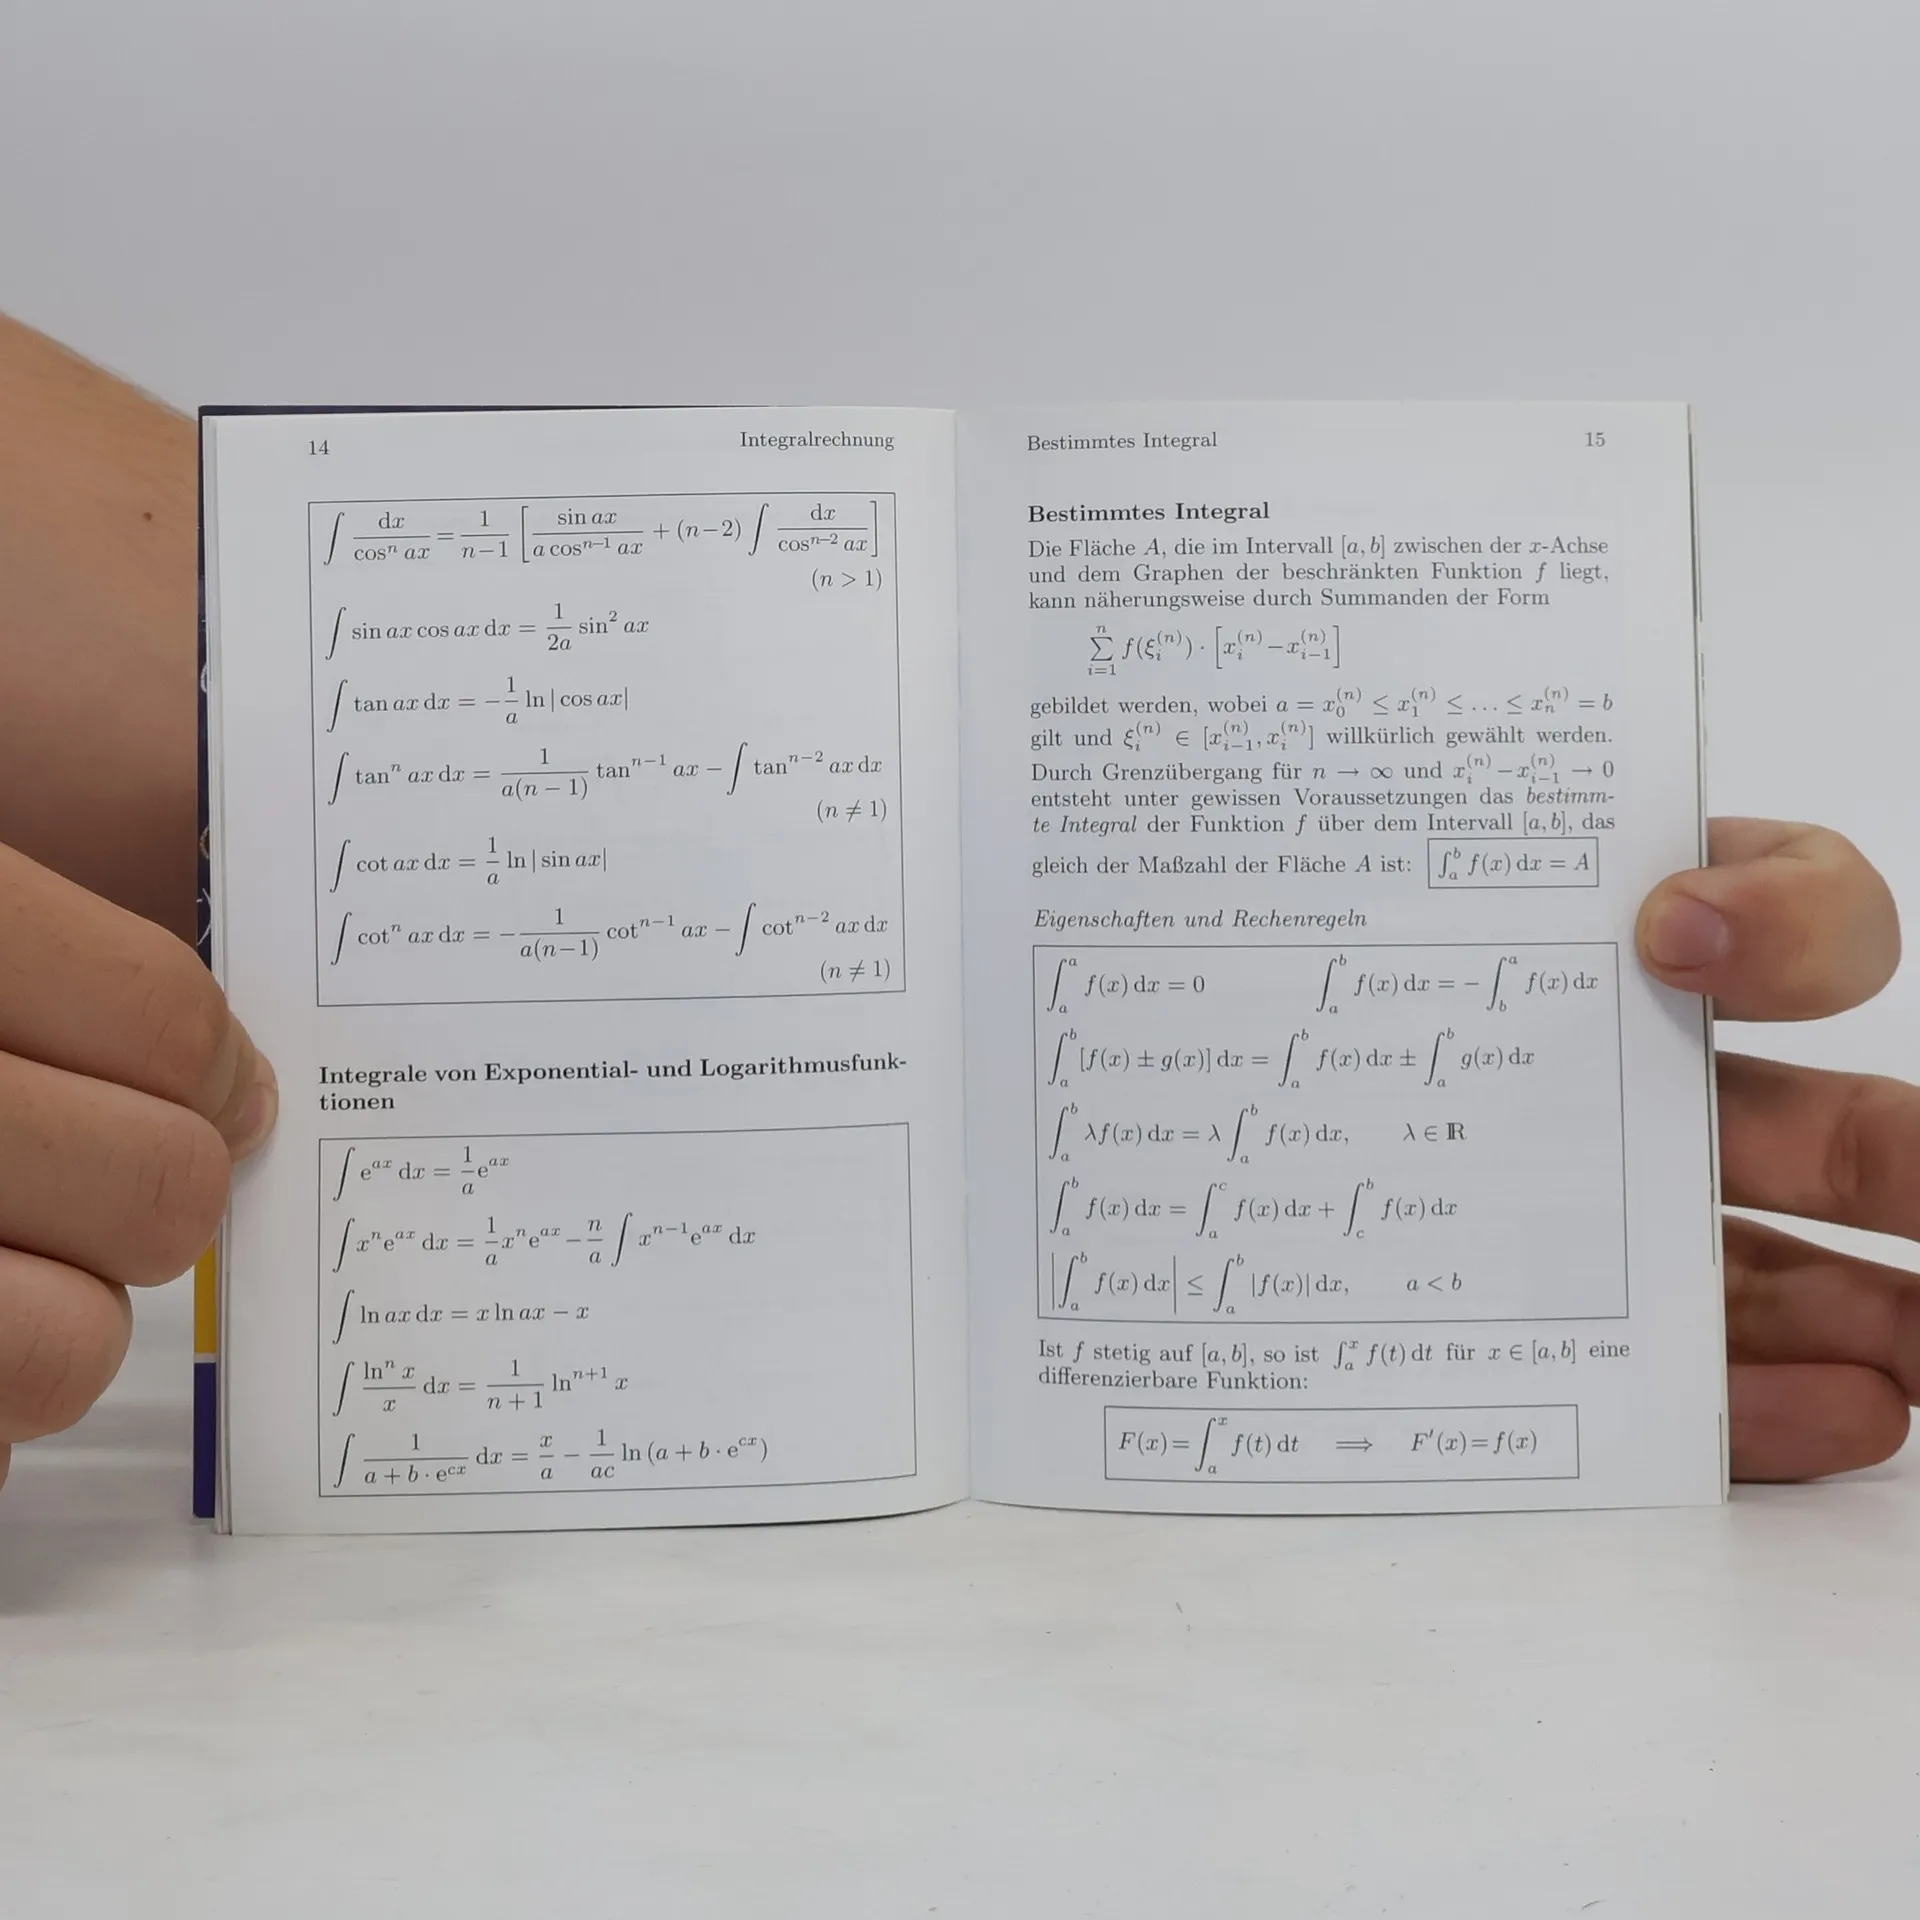 14 Integralrechnung
∫ dx/(cosⁿ ax) = 1/(n−1) [ sin ax/(a cosⁿ⁻¹ ax) + (n−2) ∫ dx/(cosⁿ⁻² ax) ]
(n > 1)
∫ sin ax cos ax dx = 1/(2a) sin² ax
∫ tan ax dx = −1/a ln |cos ax|
∫ tanⁿ ax dx = 1/(a(n − 1)) tanⁿ⁻¹ ax − ∫ tanⁿ⁻² ax dx
(n ≠ 1)
∫ cot ax dx = 1/a ln |sin ax|
∫ cotⁿ ax dx = −1/(a(n−1)) cotⁿ⁻¹ ax − ∫ cotⁿ⁻² ax dx
(n ≠ 1)
Integrale von Exponential- und Logarithmusfunk-
tionen
∫ e^{ax} dx = 1/a e^{ax}
∫ xⁿ e^{ax} dx = 1/a xⁿ e^{ax} − n/a ∫ xⁿ⁻¹ e^{ax} dx
∫ ln ax dx = x ln ax − x
∫ (lnⁿ x)/x dx = 1/(n + 1) lnⁿ⁺¹ x
∫ 1/(a + b · e^{cx}) dx = x/a − 1/(ac) ln (a + b · e^{cx})
Bestimmtes Integral 15
Bestimmtes Integral
Die Fläche A, die im Intervall [a, b] zwischen der x-Achse
und dem Graphen der beschränkten Funktion f liegt,
kann näherungsweise durch Summanden der Form
∑_{i=1}^{n} f(ξ_i^{(n)}) · [x_i^{(n)} − x_{i−1}^{(n)}]
gebildet werden, wobei a = x_0^{(n)} ≤ x_1^{(n)} ≤ ... ≤ x_n^{(n)} = b
gilt und ξ_i^{(n)} ∈ [x_{i−1}^{(n)}, x_i^{(n)}] willkürlich gewählt werden.
Durch Grenzübergang für n → ∞ und x_i^{(n)} − x_{i−1}^{(n)} → 0
entsteht unter gewissen Voraussetzungen das bestimm-
te Integral der Funktion f über dem Intervall [a, b], das
gleich der Maßzahl der Fläche A ist: ∫_a^b f(x) dx = A
Eigenschaften und Rechenregeln
∫_a^a f(x) dx = 0 ∫_a^b f(x) dx = − ∫_b^a f(x) dx
∫_a^b [f(x) ± g(x)] dx = ∫_a^b f(x) dx ± ∫_a^b g(x) dx
∫_a^b λf(x) dx = λ ∫_a^b f(x) dx, λ ∈ ℝ
∫_a^b f(x) dx = ∫_a^c f(x) dx + ∫_c^b f(x) dx
|∫_a^b f(x) dx| ≤ ∫_a^b |f(x)| dx, a < b
Ist f stetig auf [a, b], so ist ∫_a^x f(t) dt für x ∈ [a, b] eine
differenzierbare Funktion:
F(x) = ∫_a^x f(t) dt ⟹ F′(x) = f(x)